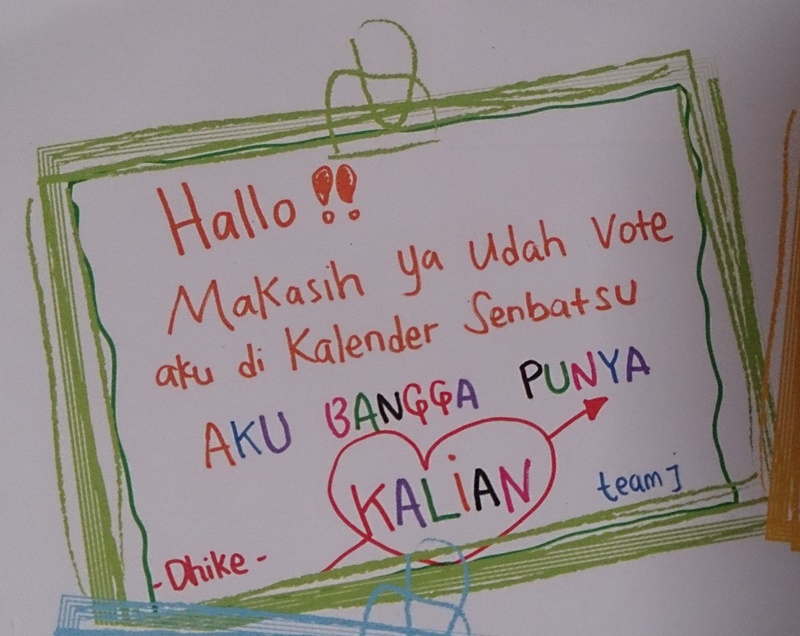 Hallo !!
Makasih ya udah Vote
aku di Kalender Senbatsu
AKU BANGGA PUNYA
KALiAN
team J
- Dhike -